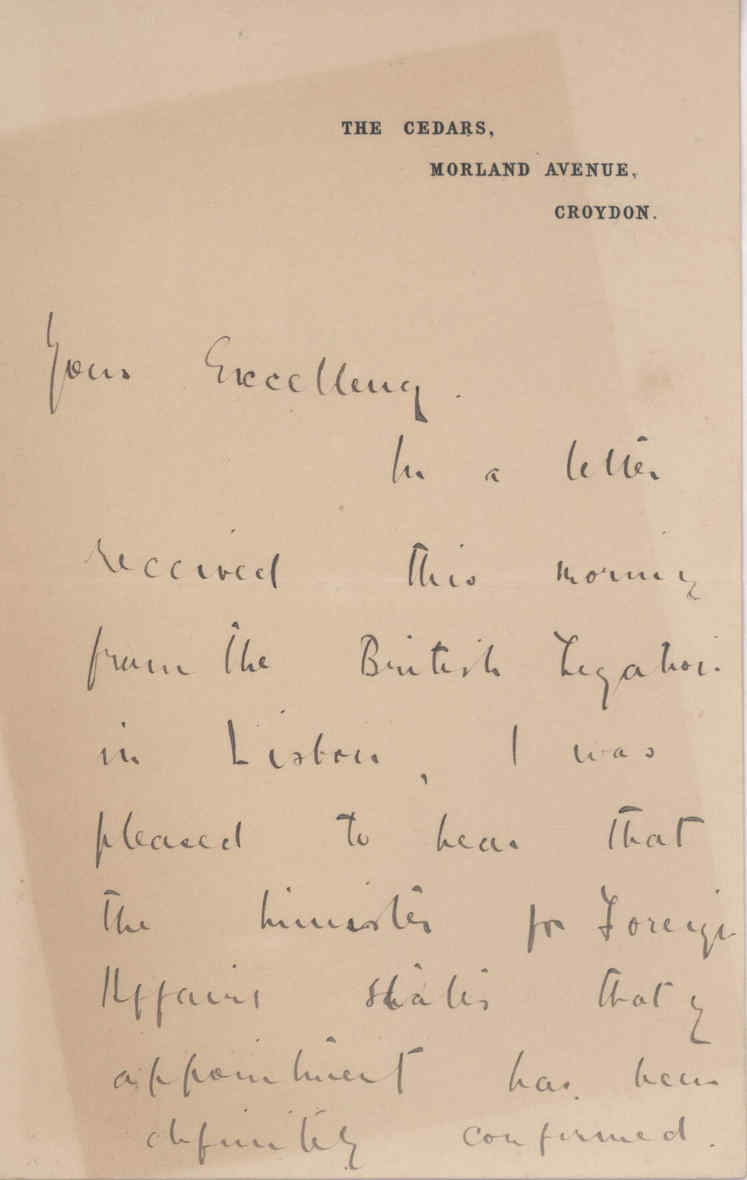 THE CEDARS,
MORLAND AVENUE,
CROYDON.
Your Excellency.
In a letter
received this morning
from the British Legation
in Lisbon, I was
pleased to hear that
the Minister for Foreign
Affairs states that
appointment has been
definitely confirmed.